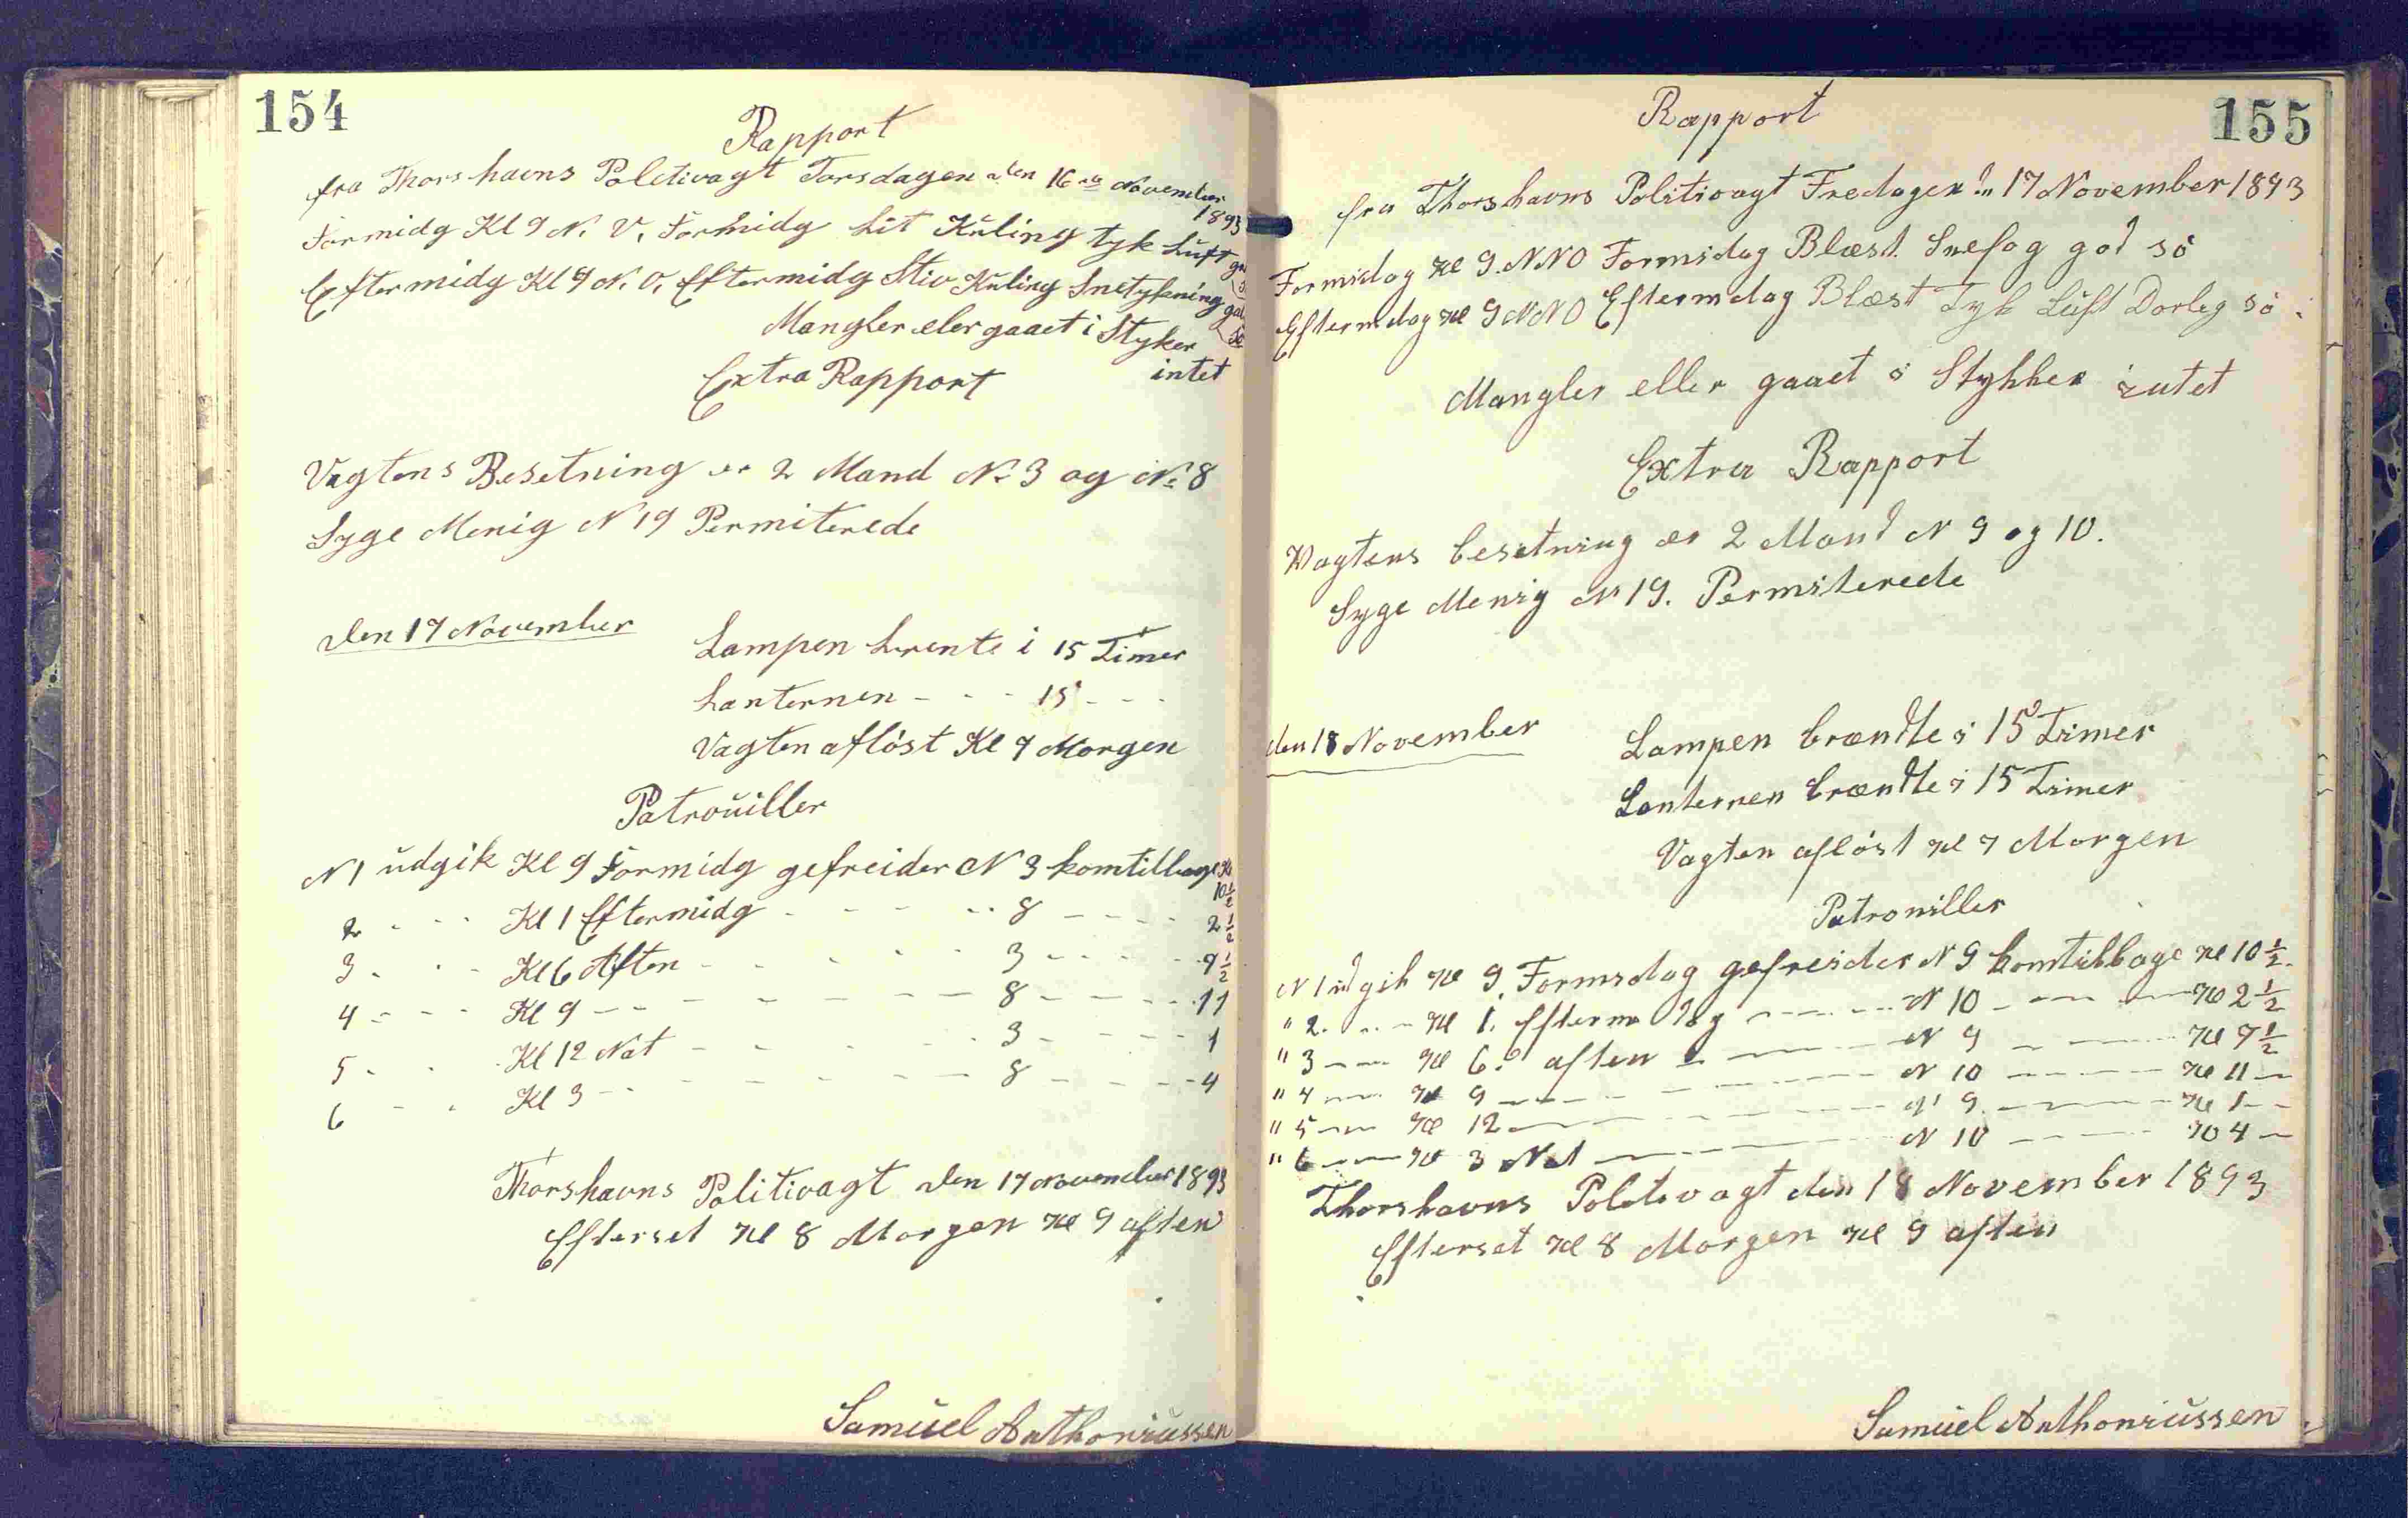 154
Rapport
fra Thorshavns Politivagt Torsdagen den 16 November
1893
Formidg Kl 9 N. V. Formidg Lit Kuling tyk Luft
Eftermidg Kl 9 N. O. Eftermidg Stiv Kuling Snetykning
Mangler eler gaaet i Styker
intet
Extra Rapport
Vagtens Besetning er 2 Mand N. 3 og N. 8
Syge Menig N 19 Permiterede
den 17 November
Lampen brente i 15 Timer
Lanternen - - - 15 - - -
Vagten afløst Kl 7 Morgen
Patrouiller
N 1 udgik Kl 9 Formidg gefreider N 3 kom tilbage Kl 10 1/2
2 - - - Kl 1 Eftermidg - - - - - 8 - - - - 2 1/2
3 - - - Kl 6 Aften - - - - - 3 - - - - 7 1/2
4 - - - Kl 9 - - - - - - 8 - - - - 11
5 - - - Kl 12 Nat - - - - - 3 - - - - 1
6 - - Kl 3 - - - - - - 8 - - - - 4
Thorshavns Politivagt den 17 November 1893
Efterset Kl 8 Morgen Kl 9 aften
Samuel Anthoniussen
155
Rapport
fra Thorshavns Politivagt Fredagen dn 17 November 1893
Formidag Kl 9. NNO Formidag Blæst. Snefog god sö
Eftermdag Kl 9 NNO Eftermdag Blæst Tyk Luft Dorleg sö.
Mangler eller gaaet i Stykker intet
Extra Rapport
Vagtens besetning er 2 Mand N 9 og 10.
Syge Menig N 19. Permiterede
den 18 November
Lampen brændte i 15 Timer
Lanternen brændte i 15 Timer
Vagten afløst Kl 7 Morgen
Patrouiller
N 1 udgik Kl 9. Formidag gefreider N 9 kom tilbage Kl 10 1/2.
" 2. - - - Kl 1. Eftermidag - - - - N 10 - - - - Kl 2 1/2
" 3 - - - Kl 6. aften - - - - N 9 - - - - Kl 7 1/2
" 4 - - - Kl 9 - - - - N 10 - - - - Kl 11 -
" 5 - - - Kl 12 - - - - N 9. - - - - Kl 1 - -
" 6 - - - Kl 3 Nat - - - - N 10 - - - - Kl 4 -
Thorshavns Politivagt den 18 November 1893
Efterset Kl 8 Morgen Kl 9 aften
Samuel Anthoniussen